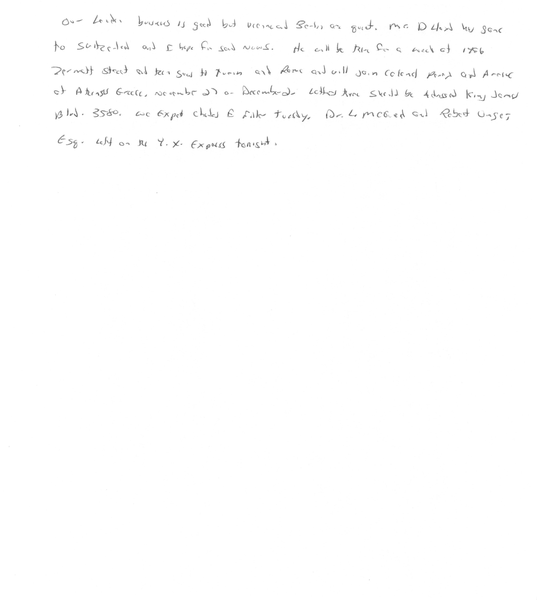 Our London business is good but Vienna and Berlin are quiet. Mr. D Lloyd has gone
to Switzerland and I hope for good news. He will be there for a week at 1496
Zermott street and then goes to Turin and Rome and will join Colonel Parry and Arrive
at Athens Greece, November 27 or December 2. Letters there should be Adressed King James
Blvd. 3580. We Expect Charles E Fuller Tuesday. Dr. L McQuaid and Robert Unger,
Esq. left on the Y. X. Express tonight.